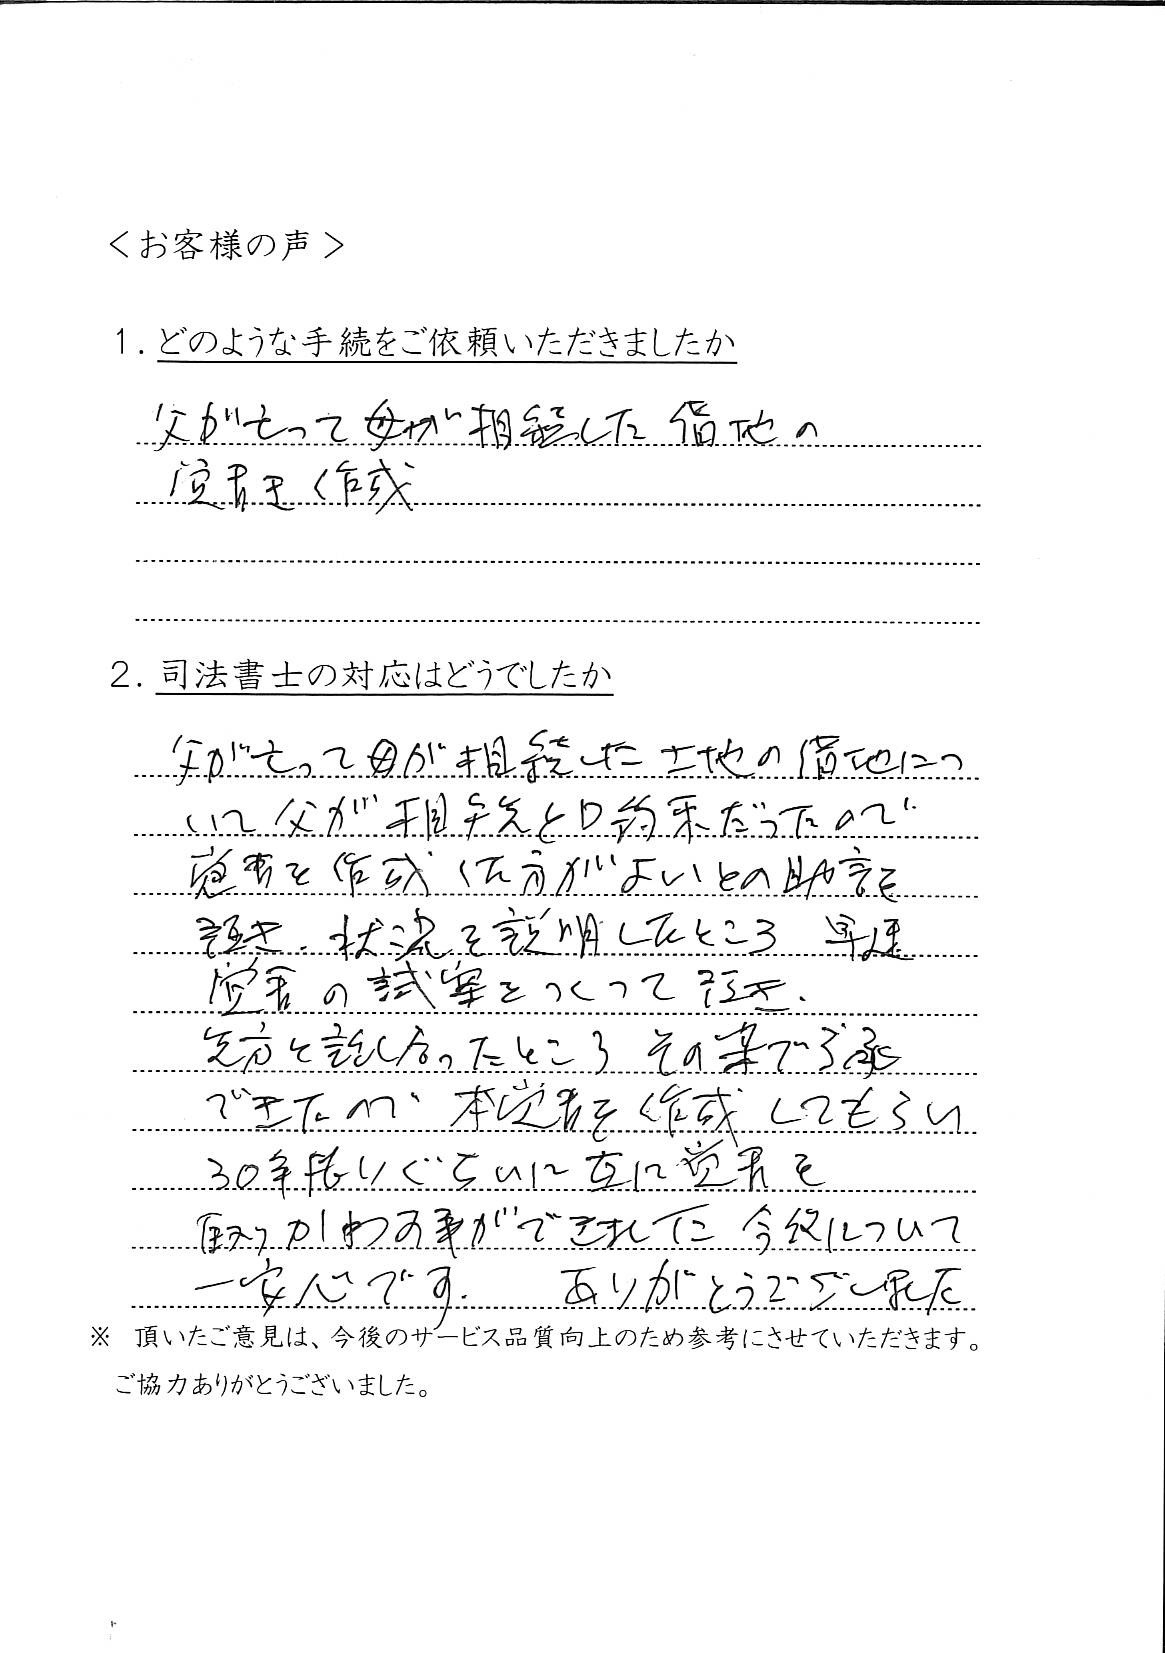 ＜お客様の声＞
１．どのような手続をご依頼いただきましたか
父が亡って母が相続した借地の
覚書き作成
２．司法書士の対応はどうでしたか
父が亡って母が相続した土地の借地につ
いて父が相手先と口約束だったので
覚書を作成した方がよいとの助言を
頂き、状況を説明したところ 早速
覚書の試案をつくって頂き、
先方と話し合ったところ その案で了承
できたので 本覚書を作成してもらい
30年振りぐらいに互に覚書を
取りかわす事ができました 今後について
一安心です. ありがとうございました
※ 頂いたご意見は、今後のサービス品質向上のため参考にさせていただきます。
ご協力ありがとうございました。